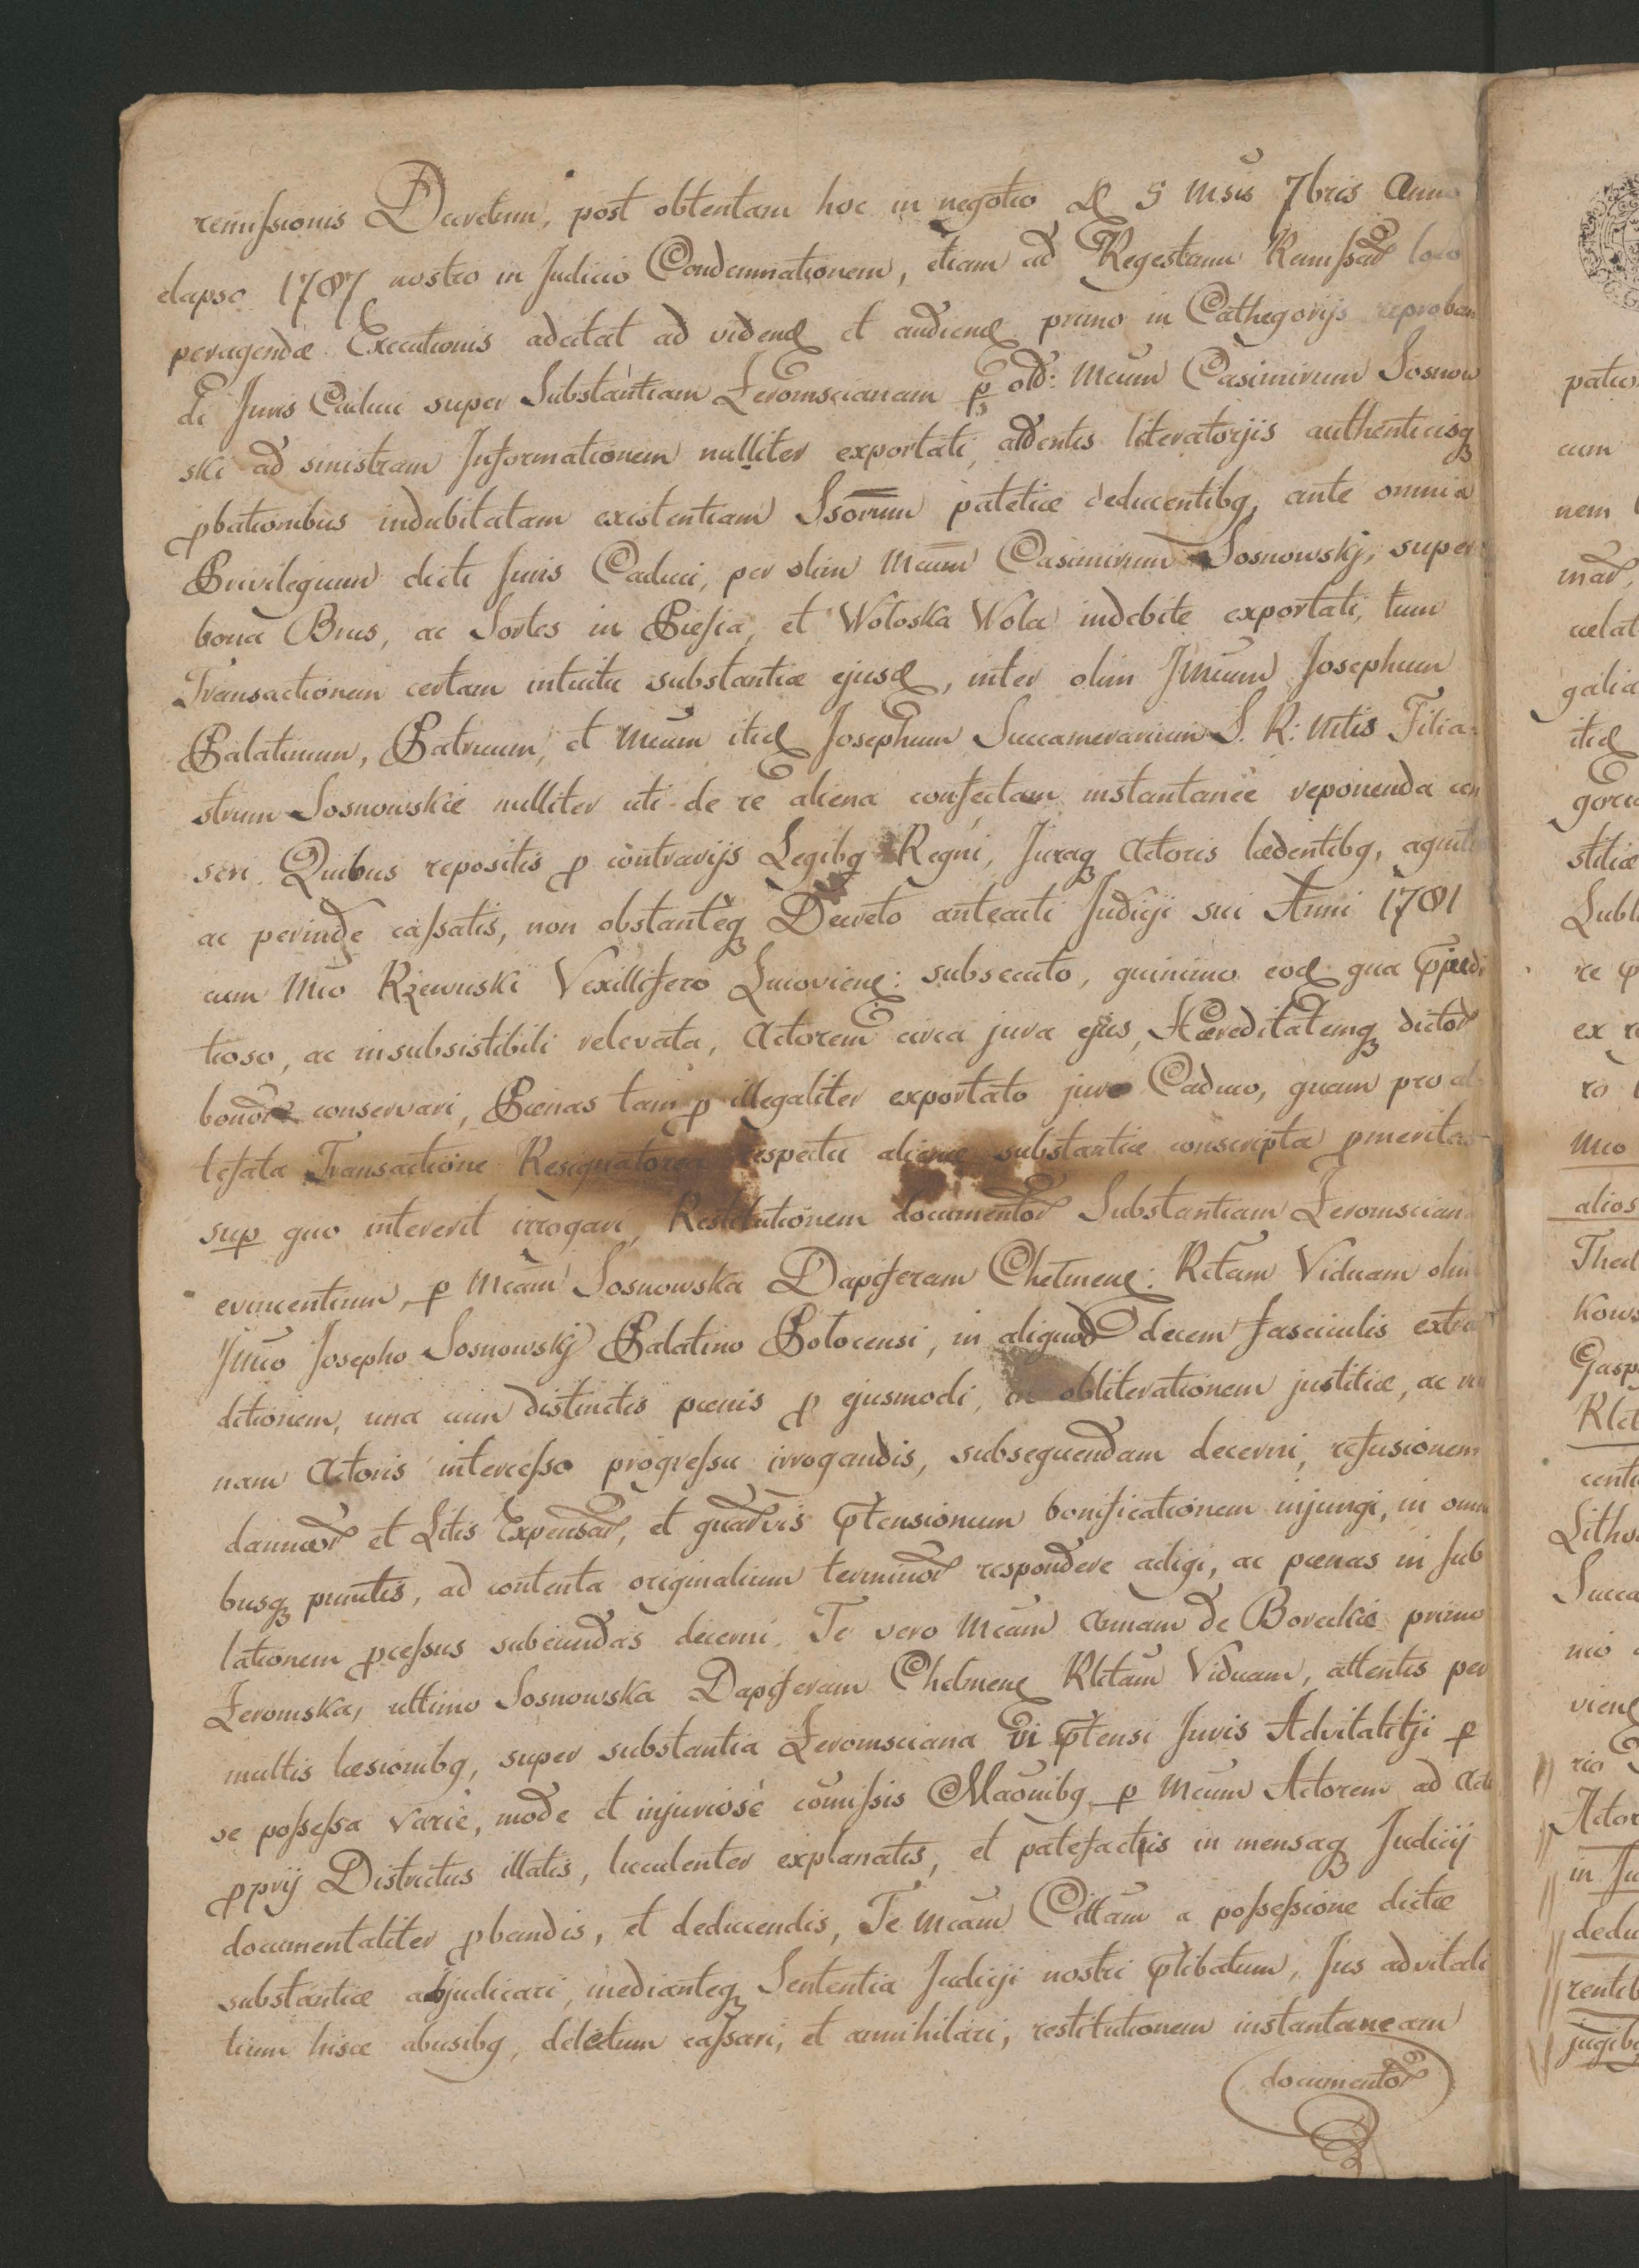 remissionis Decretum, post obtentam hoc in negotio D 5 Msis 7bris Anno
elapso 1787 nostro in Judicio Condemnationem, etiam ad Regestrum Remissar loco
peragendæ Executionis adcitat ad videnđ et audienđ primo in Cathegorijs reproban
di Juris Caduci super Substantiam Żeromscianam p olđ: Mcum Casimirum Sosnow
ski ad sinistram Informationem nulliter exportati, attentis literatorijs authenticisq
pbationibus indubitatam existentiam Ssorum patetice deducentibq, ante omnia
Privilegium dicti Juris Caduci, per olim Mcum Casimirum Sosnowskj, super
bona Brus, ac Sortes in Piesia, et Wołoska Wola indebite exportati, tum
Transactionem certam intuitu substantiæ ejusđ, inter olim Jmcum Josephum
Palatinum, Patruum, et Mcum itiđ Josephum Succamerarium S. R: Mtis Filia-
strum Sosnowskie nulliter uti de re aliena confectam instantanee reponenda cen
seri. Quibus repositis p contrarijs Legibq Regni, Juraq Actoris lædentibq, agnitis
ac perinde cassatis, non obstanteq Decreto anteacti Judicji sui Anni 1781
cum Mco Rzewuski Vexillifero Lucovienđ: subsecuto, quinimo eođ qua pjudi
tioso, ac insubsistibili relevata, Actorem circa jura ejus, Hæreditatemq dictor
bonor conservari, Pœnas tam p illegaliter exportato jure Caduco, quam pro at
testata Transactione Resignatorea respectu alienæ substantiæ conscripta pmeritas
sup quo intererit irrogari, Restitutionem documentor Substantiam Żeromscian
evincentium, p Mcam Sosnowska Dapiferam Chelmenđ: Rltam Viduam olim
Jmco Josepho Sosnowskj Palatino Połocensi, in aliquod decem fasciculis extra
ditionem, una cum distinctis pœnis p ejusmodi, in obliterationem justitiæ, ac rui
nam Actoris intercesso progressu irrogandis, subsequendam decerni, refusionem
damnor et Litis Expensar, et quarvis ptensionum bonificationem injungi, in omni
busq punctis, ad contenta originalium terminor respondere adigi, ac pœnas in sub
lationem pcessus subeundas decerni. Te vero Mcam Annam de Boreckie primo
Żeromska, ultimo Sosnowska Dapiferam Chelmenđ Rlitam Viduam, attentis per
multis læsionibq, super substantia Żeromsciana vi ptensi Juris Advitalitji p
se possessa varie, mode et injuriose comissis Maonibq p Mcum Actorem ad Acta
pprij Districtus illatis, luculenter explanatis, et patefactis in mensaq Judicij
documentaliter pbandis, et deducendis, Te Mcam Cittam a possessione dictæ
substantiæ abjudicari, medianteq Sententia Judicji nostri ptibatum, Jus advitali
tium hisce abusibq, deletum cassari, et annihilari, restitutionem instantaneam
documentor